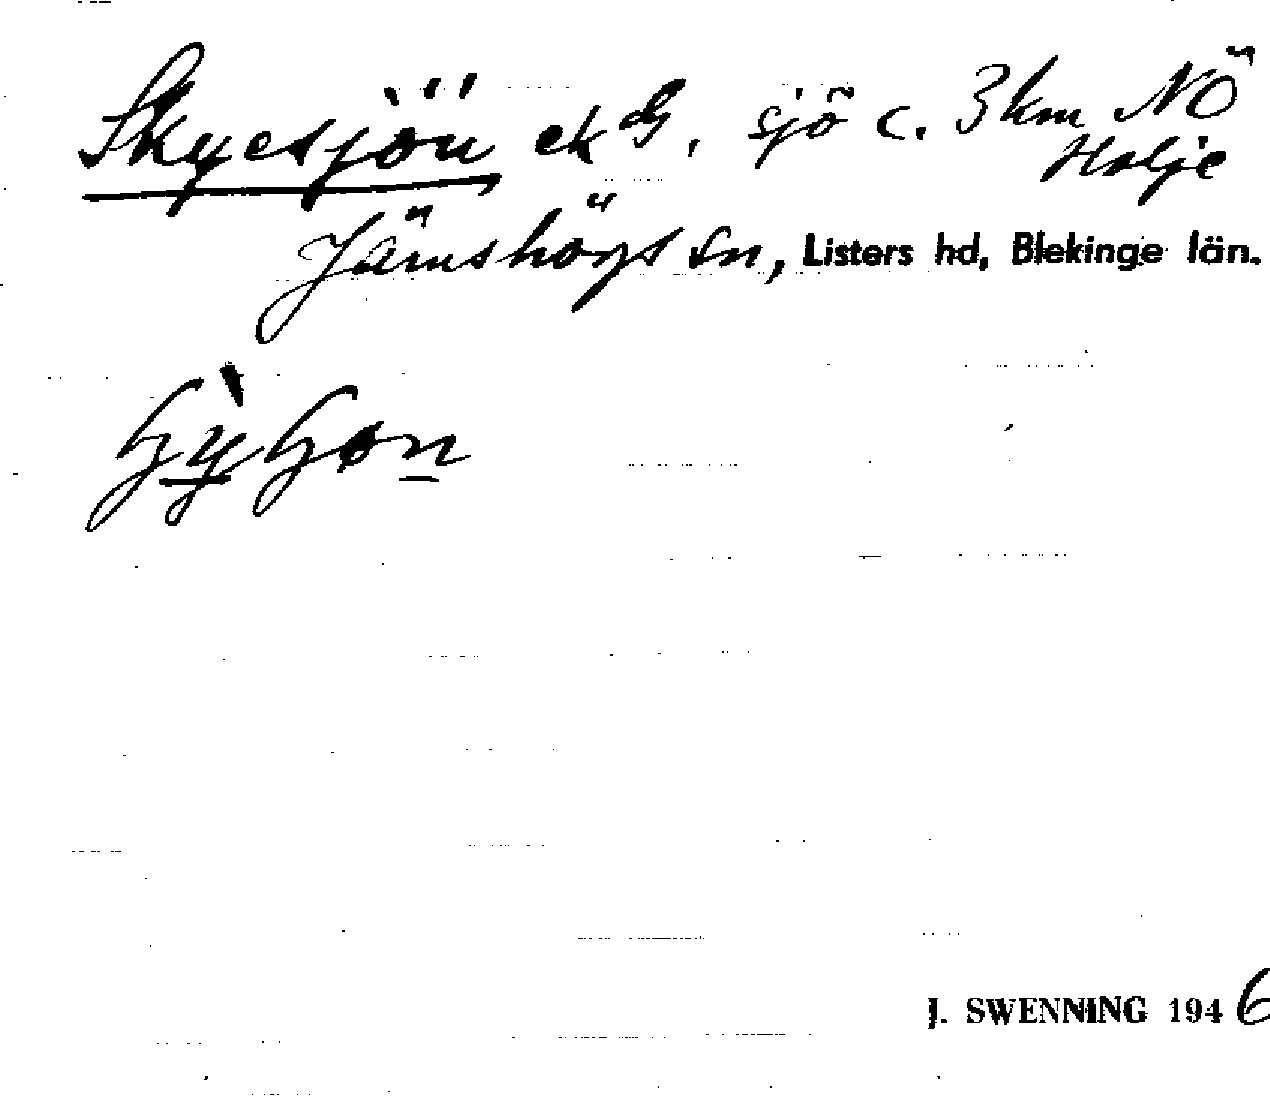 Skyesjön ek G, sjö c. 3 km NÖ
Holje
Jämshögs sn, Listers hd, Blekinge län.
J. SWENNING 1946